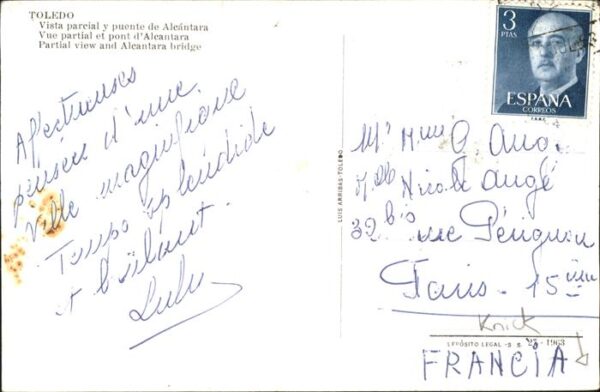 TOLEDO
Vista parcial y puente de Alcántara
Vue partial et pont d'Alcantara
Partial view and Alcantara bridge
Affectueuses
pensées d'une
Ville magnifique
Temps splendide
et brûlant.
Lulu
LUIS ARRIBAS-TOLEDO
3
PTAS
ESPAÑA
CORREOS
Mr Mme G. Angé
Nicole Angé
32 bis rue
Paris - 15
Knick
DEPÓSITO LEGAL 1963
FRANCIA